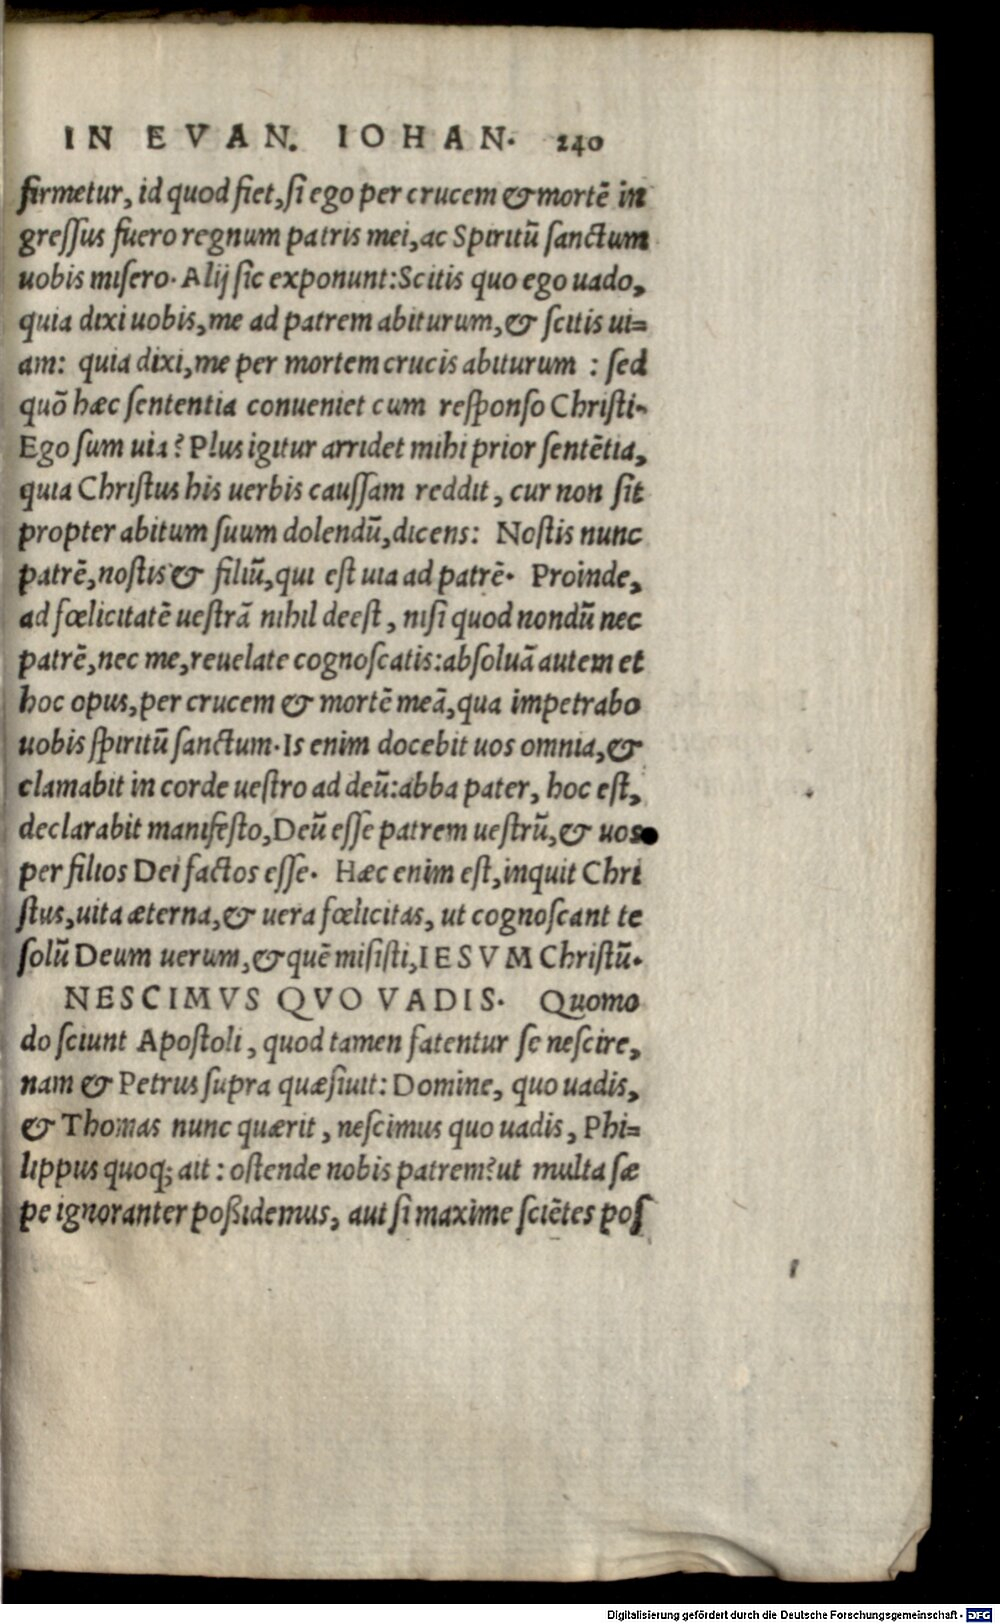 IN EVAN. IOHAN. 240
firmetur, id quod fiet, si ego per crucem & mortē in
gressus fuero regnum patris mei, ac Spiritū sanctum
uobis misero. Alij sic exponunt: Scitis quo ego uado,
quia dixi uobis, me ad patrem abiturum, & scitis ui=
am: quia dixi, me per mortem crucis abiturum : sed
quō hæc sententia conueniet cum responso Christi.
Ego sum uia? Plus igitur arridet mihi prior sentētia,
quia Christus his uerbis caussam reddit, cur non sit
propter abitum suum dolendū, dicens: Nostis nunc
patrē, nostis & filiū, qui est uia ad patrē. Proinde,
ad fœlicitatē uestrā nihil deest, nisi quod nondū nec
patrē, nec me, reuelate cognoscatis: absoluā autem et
hoc opus, per crucem & mortē meā, qua impetrabo
uobis spiritū sanctum. Is enim docebit uos omnia, &
clamabit in corde uestro ad deū: abba pater, hoc est,
declarabit manifesto, Deū esse patrem uestrū, & uos
per filios Dei factos esse. Hæc enim est, inquit Chri
stus, uita æterna, & uera fœlicitas, ut cognoscant te
solū Deum uerum, & quē misisti, IESVM Christū.
NESCIMVS QVO VADIS. Quomo
do sciunt Apostoli, quod tamen fatentur se nescire,
nam & Petrus supra quæsiuit: Domine, quo uadis,
& Thomas nunc quærit, nescimus quo uadis, Phi=
lippus quoq; ait : ostende nobis patrem? ut multa sæ
pe ignoranter possidemus, aut si maxime sciētes pos
Digitalisierung gefördert durch die Deutsche Forschungsgemeinschaft - DFG